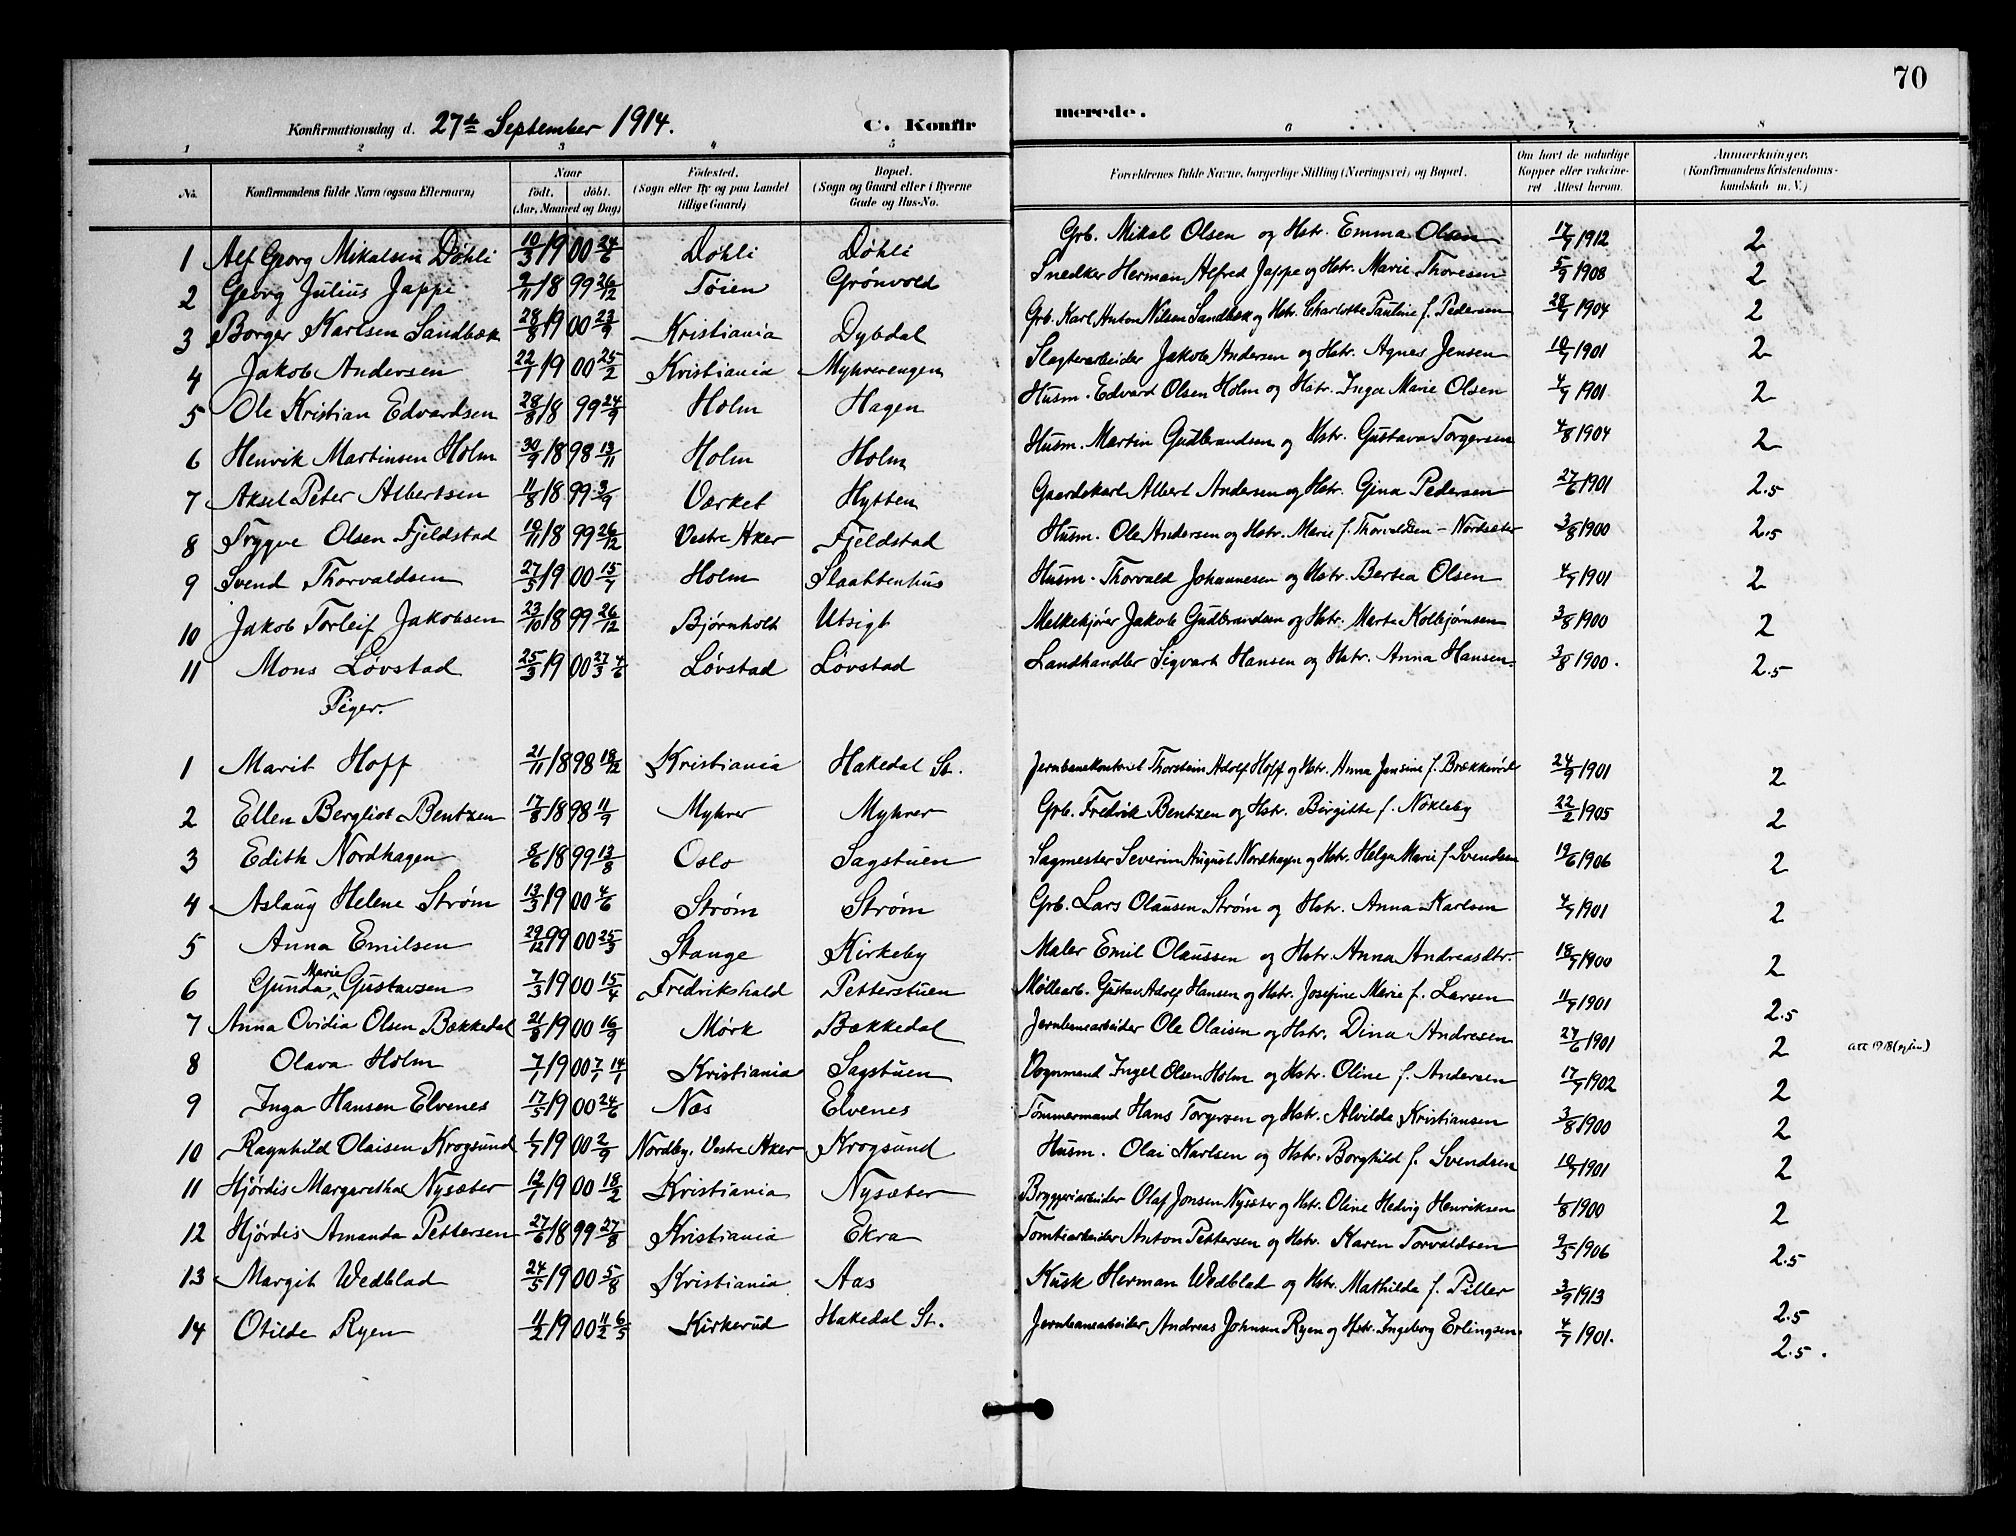 70
Konfirmationsdag d. 27de September 1914. C. Konfir merede.
1 2 3 4 5 6 7 8
No. Konfirmandens fulde Navn (ogsaa Efternavn) Naar født, døbt. (Aar, Maaned og Dag) Fødested. (Sogn eller By og paa Landet tillige Gaard) Bopæl. (Sogn og Gaard eller i Byerne Gade og Hus-No. Forældrenes fulde Navne, borgerlige Stilling (Næringsvei) og Bopæl. Om havt de naturlige Kopper eller vaccineret Attest herom. Anmærkninger. (Konfirmandens Kristendomskundskab m. V.)
1 Alf Georg Mikalsen Døhli 10/3 1900 24/6 Døhli Døhli Grb. Mikal Olsen og Hstr. Emma Olsen 17/9 1912 2
2 Georg Julius Jappe 2/11 1899 26/12 Tøien Grønvold Snedker Herman Alfred Jappe og Hstr. Marie Thoresen 5/9 1908 2
3 Borger Karlsen Sandbæk 28/8 1900 23/9 Kristiania Dybdal Grb. Karl Anton Nilsen Sandbæk og Hstr. Charlotte Pauline f. Pedersen 28/9 1904 2
4 Jakob Andersen 22/1 1900 25/2 Kristiania Myhrerengen Slagterarbeider Jakob Andersen og Hstr. Agnes Jensen 10/7 1901 2
5 Ole Kristian Edvardsen 28/8 1899 24/9 Holm Hagen Husm. Edvard Olsen Holm og Hstr. Inga Marie Olsen 4/7 1901 2
6 Henrik Martinsen Holm 30/9 1898 13/11 Holm Holm Husm. Martin Gudbrandsen og Hstr. Gustava Torgersen 4/8 1904 2
7 Aksel Peter Albertsen 11/8 1899 3/9 Værket Hytten Gaardskarl Albert Andersen og Hstr. Gina Pedersen 27/6 1901 2.5
8 Trygve Olsen Fjeldstad 10/11 1899 26/12 Vestre Aker Fjeldstad Husm. Ole Andersen og Hstr. Marie f. Thorvaldsen - Nordsæter 3/8 1900 2.5
9 Svend Thorvaldsen 27/5 1900 15/7 Holm Slaattenhus Husm. Thorvald Johannesen og Hstr. Bertea Olsen 4/7 1901 2
10 Jakob Torleif Jakobsen 23/10 1899 26/12 Bjørnholt Utsigt Melkekjører Jakob Gudbrandsen og Hstr. Marte Kolbjørnsen 3/8 1900 2
11 Mons Løvstad 25/3 1900 27/3 4/6 Løvstad Løvstad Landhandler Sigvart Hansen og Hstr. Anna Hansen. 3/8 1900. 2.5
Piger.
1 Marit Hoff 21/11 1898 18/12 Kristiania Hakedal St. Jernbanekontorist Thorstein Adolf Hoff og Hstr. Anna Jensine f. 24/9 1901 2
2 Ellen Bergliot Bentzen 17/8 1898 11/9 Myhrer Myhrer Grb. Fredrik Bentzen og Hstr. Birgitte f. Nökleby 22/2 1905 2
3 Edith Nordhagen 8/6 1899 13/8 Oslo Sagstuen Sagmester Severin August Nordhagen og Hstr. Helga Marie f. Svendsen 19/6 1906 2
4 Aslaug Helene Strøm 13/3 1900 4/6 Strøm Strøm Grb. Lars Olausen Strøm og Hstr. Anna Karlsen 4/7 1901 2
5 Anna Emilsen 29/12 99 00 25/3 Stange Kirkeby Maler Emil Olaussen og Hstr. Anna Andreasdtr 18/9 1900 2
6 Gunda Marie Gustavsen 7/3 1900 15/4 Fredrikshald Petterstuen Møllearb. Gustav Adolf Hansen og Hstr. Josefine Marie f. Larsen 11/9 1901 2.5
7 Anna Ovidia Olsen Bækkedal 21/8 1900 16/9 Mørk Bækkedal Jernbanearbeider Ole Olaisen og Hstr. Dina Andresen 27/6 1901 2
8 Olava Holm 7/1 1900 7/1 14/1 Kristiania Sagstuen Vognmand Ingel Olsen Holm og Hstr. Oline f. Andersen 17/9 1902 2
9 Inga Hansen Elvenes 17/5 1900 24/6 Næs Elvenes Tømmermand Hans Torgersen og Hstr. Alvilda Kristiansen 3/8 1900 2
10 Ragnhild Olaisen Krogsund 1/7 1900 2/9 Nordby. Vestre Aker Krogsund Husm. Olai Karlsen og Hstr. Borghild f. Svendsen 10/7 1901 2
11 Hjördis Margaretha Nysæter 12/1 1900 18/2 Kristiania Nysæter Bryggeriarbeider Olaf Jonsen Nysæter og Hstr. Oline Hedvig Henriksen 1/8 1900 2
12 Hjördis Amanda Pettersen 27/6 1899 27/8 Kristiania Ekra Tomtearbeider Anton Pettersen og Hstr. Karen Torvaldsen 9/5 1906 2.5
13 Margit Wedblad 24/5 1900 5/8 Kristiania Aas Kusk Herman Wedblad og Hstr. Mathilde f. Piller 3/9 1913 2.5
14 Otilde Ryen 11/2 1900 11/2 6/5 Kirkerud Hakedal St. Jernbanearbeider Andreas Johnsen Ryen og Hstr. Ingeborg Erlingsen. 4/7 1901. 2.5.